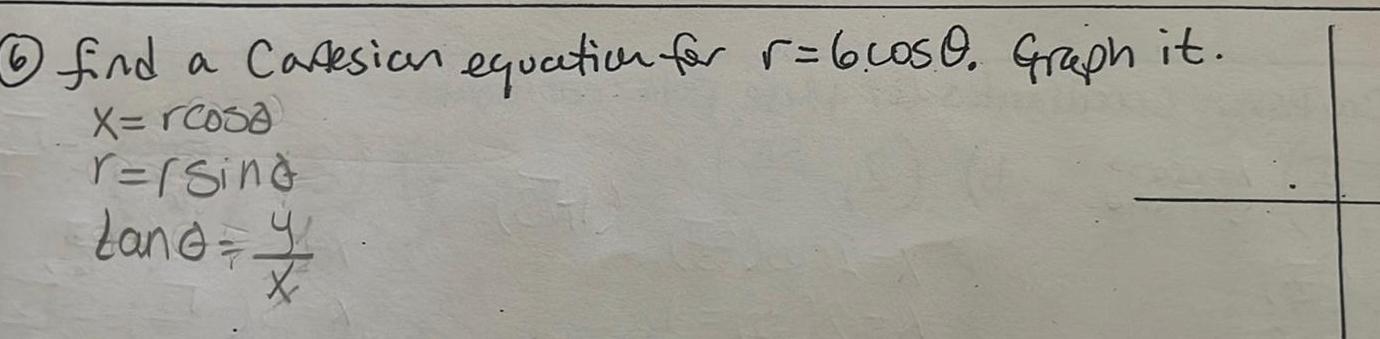 ⑥ find a Cartesian equation for r=6cosθ. Graph it.
x=rcosθ
r=rsinθ
tanθ=y/x